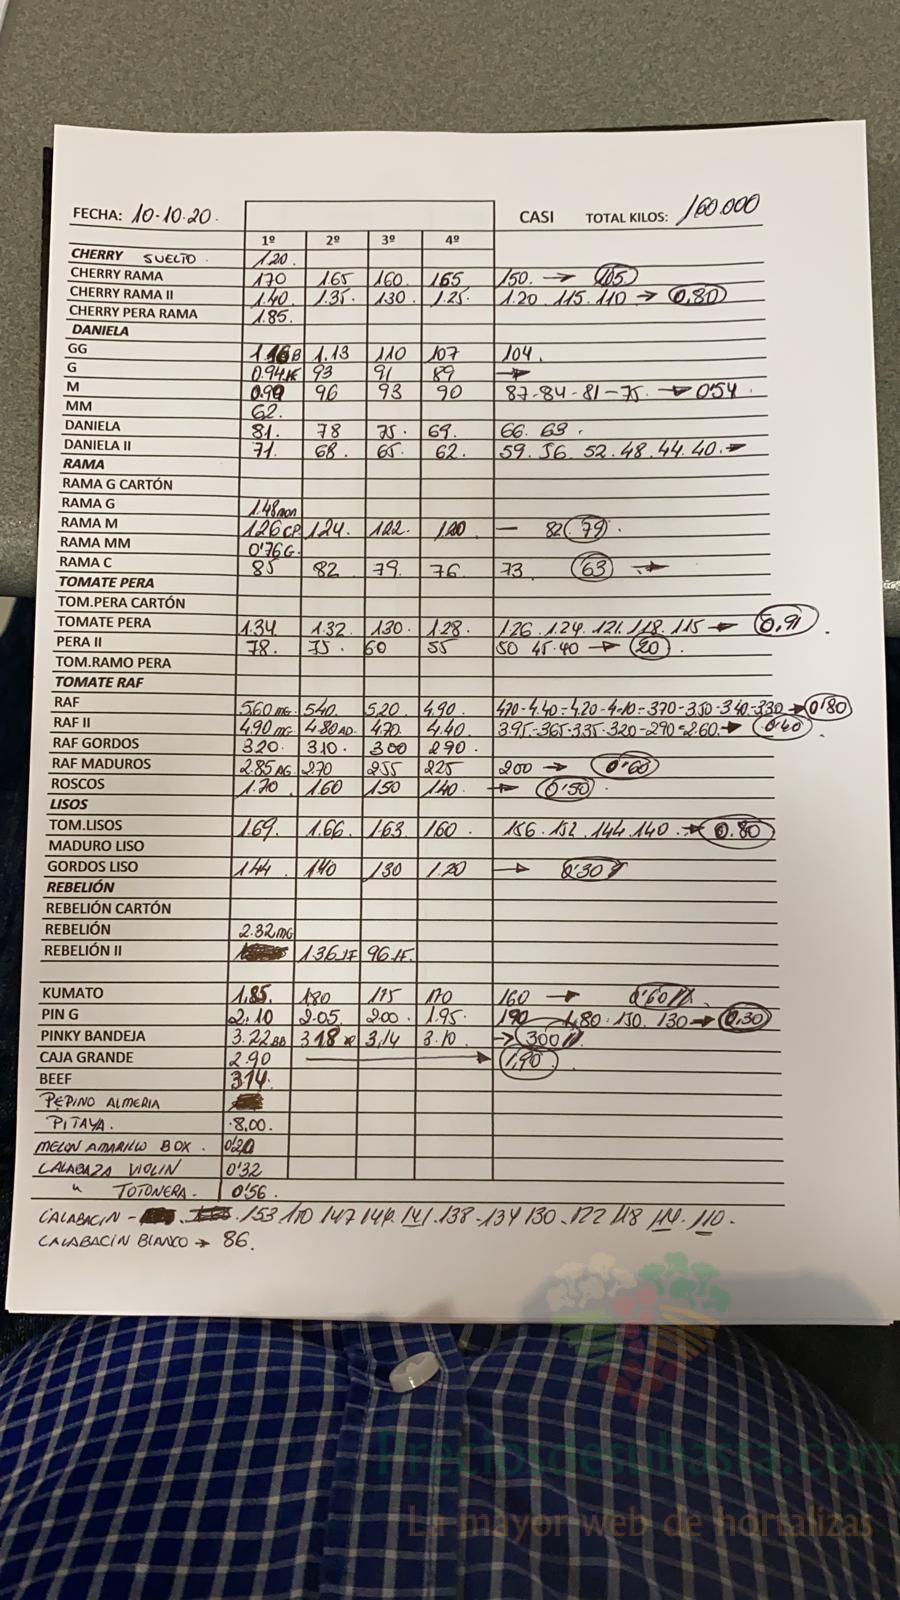 FECHA: 10-10.20. CASI TOTAL KILOS: 160.000
1º 2º 3º 4º
CHERRY SUELTO. 1.20.
CHERRY RAMA 170 1.65 160 165 150. → 105
CHERRY RAMA II 1.40. 1.35. 130. 1.25. 1.20 115. 110 → 0,80
CHERRY PERA RAMA 1.85.
DANIELA
GG 1.13 110 107 104.
G 93 91 89 →
M 96 93 90 87-84-81-75. → 0'54.
MM 62.
DANIELA 81. 78 75. 69. 66. 63.
DANIELA II 71. 68. 65. 62. 59. 56. 52. 48. 44. 40. →
RAMA
RAMA G CARTÓN
RAMA G 1.48
RAMA M 1.26 CP 1.24. 1.22. 1.20 — 82 79.
RAMA MM 0'76 G.
RAMA C 85 82 79. 76. 73 63 →
TOMATE PERA
TOM.PERA CARTÓN
TOMATE PERA 1.34. 1.32. 130. 128. 126. 1.24. 121. 118. 115 → 0,91.
PERA II 78. 75. 60 55 50 45. 40 → 20.
TOM.RAMO PERA
TOMATE RAF
RAF 5.60 MG. 540. 5,20. 4.90. 470-4.40-4.20-4.10-370-350-340-330 → 0'80
RAF II 4.90 MG. 4.80 4.70 4.40. 395.-365-335-320-290-2.60. → 0'40
RAF GORDOS 320. 310. 300 290.
RAF MADUROS 2.85 AG. 270 255 225 200 → 0'60
ROSCOS 1.70 160 150 140. → 0'50.
LISOS
TOM.LISOS 1.69. 1.66. 1.63. 1.60. 156. 152. 144. 140. → 0.80
MADURO LISO
GORDOS LISO 144 140 130 1.20 → 0'30
REBELIÓN
REBELIÓN CARTÓN
REBELIÓN 2.32 MG
REBELIÓN II 1.36 JF 96 JF.
KUMATO 1.85. 180 175 170 160 → 0'60
PIN G 2.10 2.05 200. 1.95. 190 1,80. 150. 130 → 0,30
PINKY BANDEJA 3.22 318 3,14 3.10. → 300
CAJA GRANDE 2.90 → 1,90
BEEF 3.14.
PEPINO ALMERIA
PITAYA. 8,00.
MELON AMARILLO BOX. 0'20
CALABAZA VIOLIN 0'32
" TOTONERA. 0'56.
CALABACIN - 153 150 147 144. 141. 138 - 134 130. 122 118 114. 110.
CALABACIN BLANCO → 86.
Preciosdesubasta.com
La mayor web de hortalizas